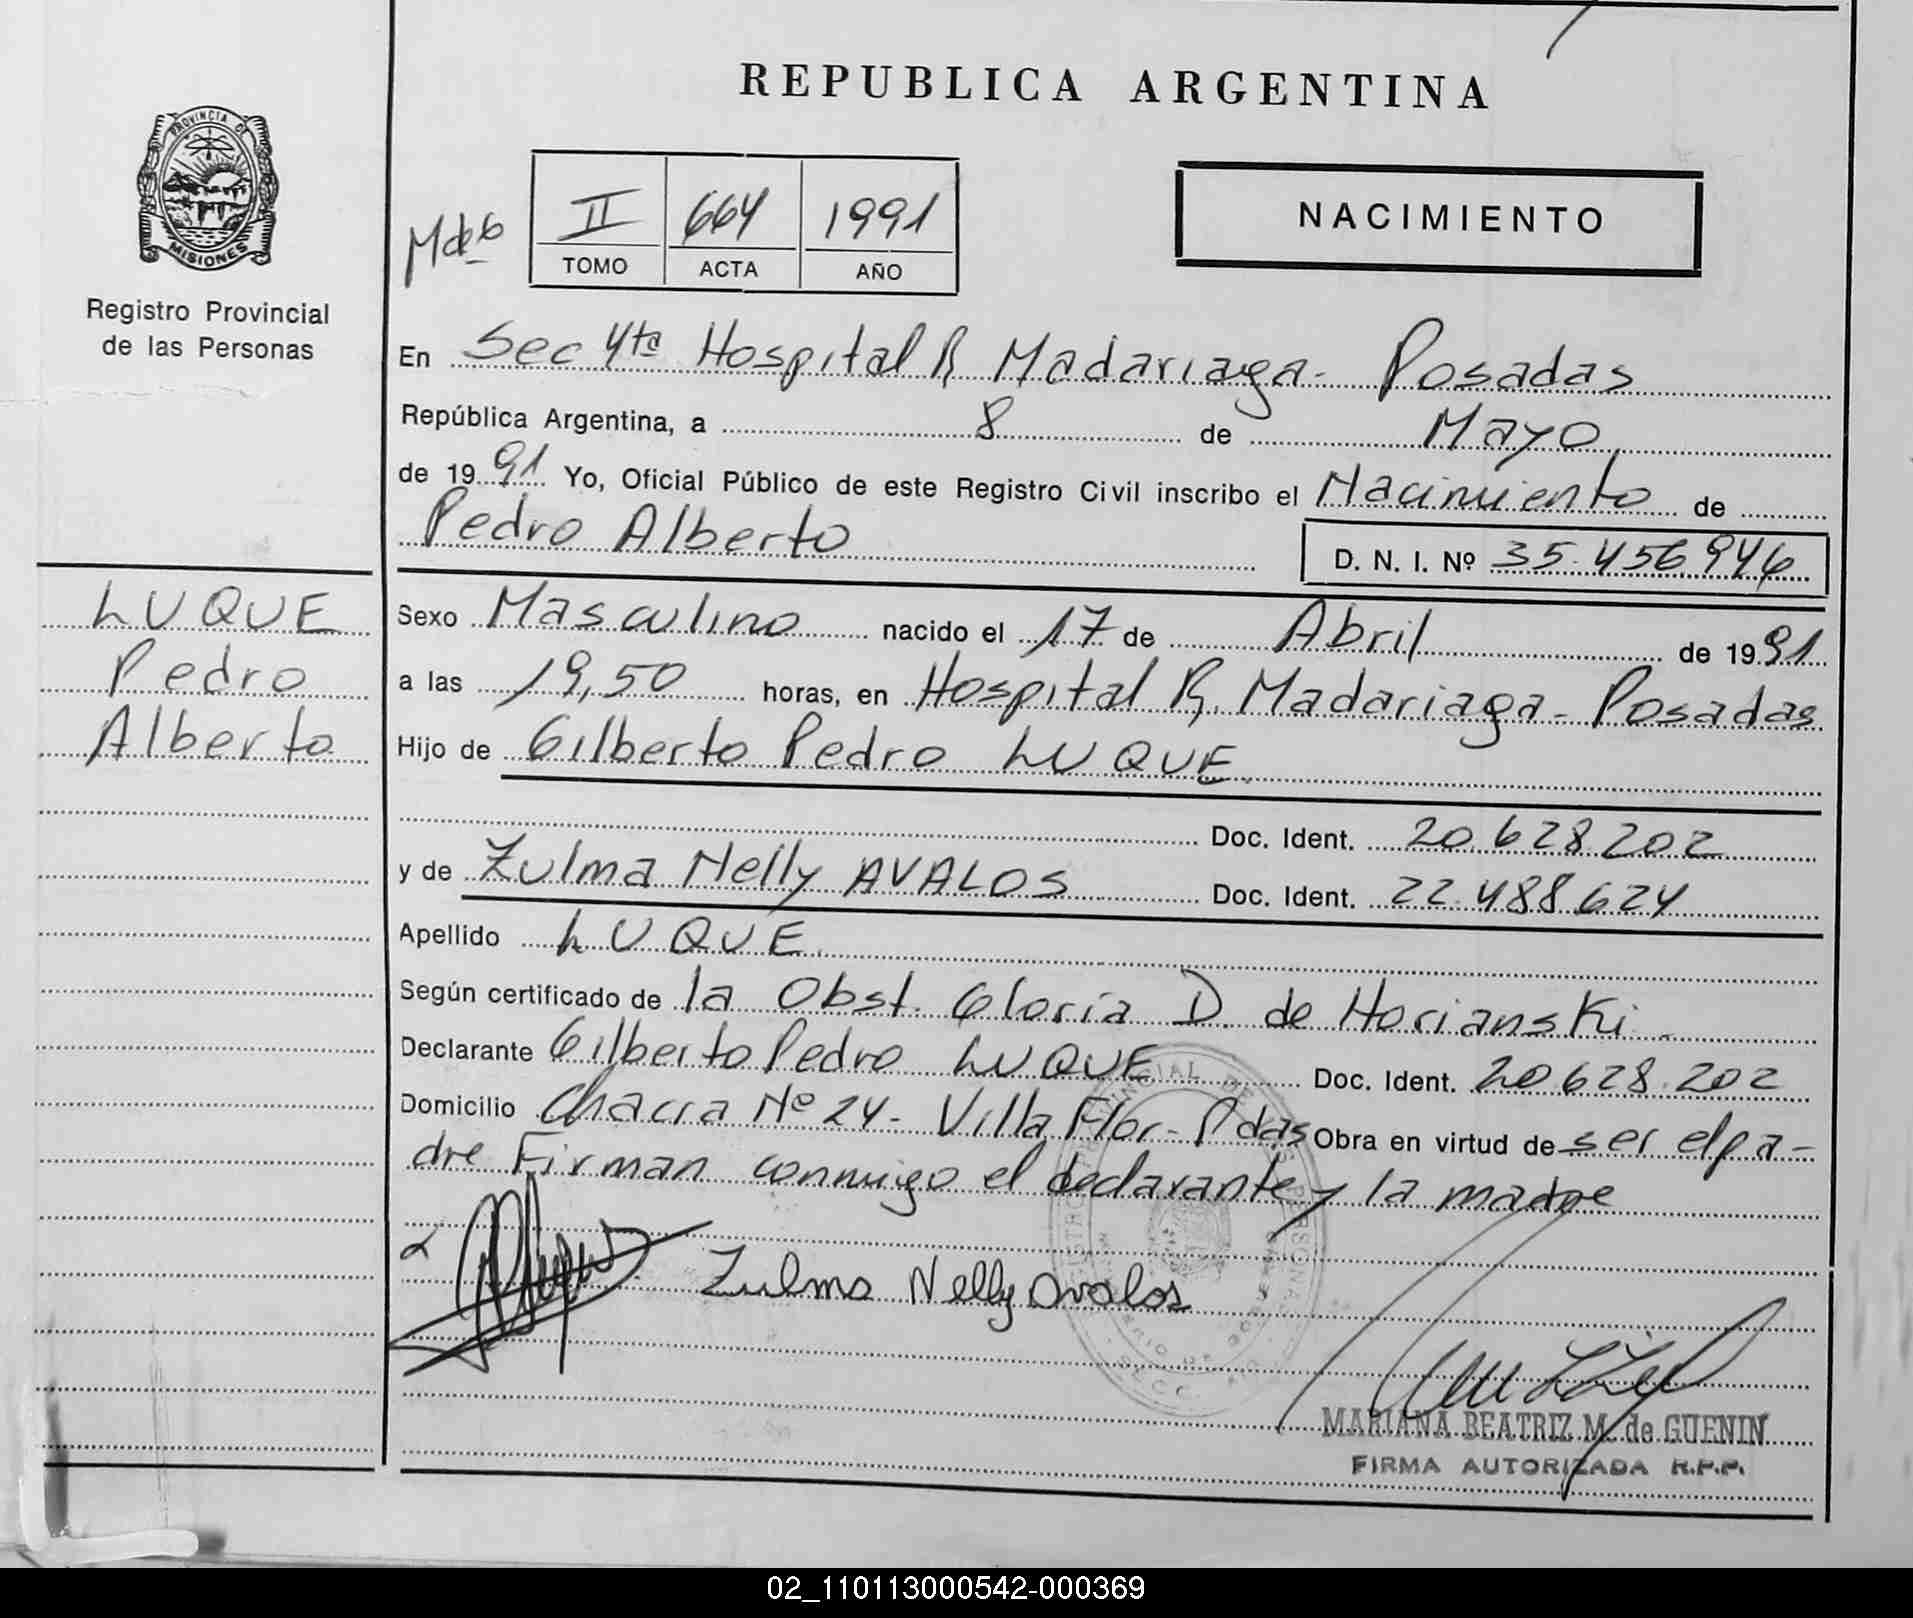 REPUBLICA ARGENTINA
PROVINCIA DE
MISIONES
Registro Provincial
de las Personas
II 664 1991
TOMO ACTA AÑO
NACIMIENTO
En Sec 4ta Hospital R Madariaga - Posadas
República Argentina, a 8 de Mayo
de 1991 Yo, Oficial Público de este Registro Civil inscribo el Nacimiento de
Pedro Alberto D. N. I. Nº 35.456.946
LUQUE
Pedro
Alberto
Sexo Masculino nacido el 17 de Abril de 1991
a las 19,50 horas, en Hospital R. Madariaga - Posadas
Hijo de Gilberto Pedro LUQUE
Doc. Ident. 20.628.202
y de Zulma Nelly AVALOS Doc. Ident. 22.488.624
Apellido LUQUE
Según certificado de la Obst. Gloria D. de Horianski
Declarante Gilberto Pedro LUQUE Doc. Ident. 20.628.202
Domicilio Chacra Nº 24 - Villa Flor - Pdas Obra en virtud de ser el pa-
dre Firman conmigo el declarante y la madre
Zulma Nelly Avalos
MARIANA BEATRIZ M. de GUENIN
FIRMA AUTORIZADA R.P.P.
02_110113000542-000369